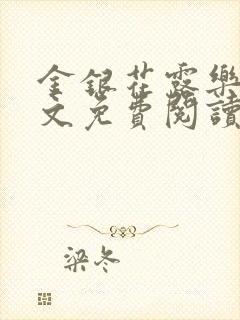 金銀花露樂
文免費閱讀
梁冬